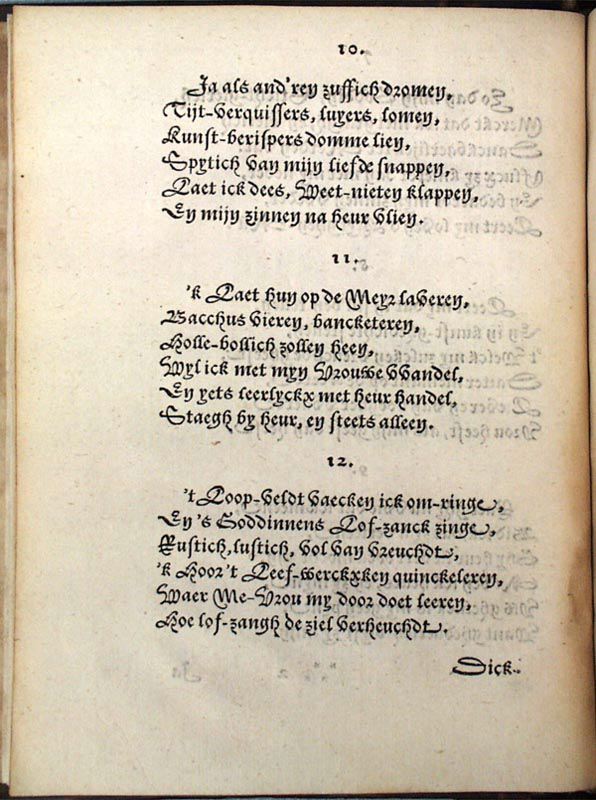 10.
Ja als and'ren zuffich dromen,
Tijt-verquissers, luyers, lomen,
Kunst-berispers domme lien,
Spytich van mijn liefde snappen,
Laet ick dees, Weet-nieten klappen,
En mijn zinnen na heur vlien.
11.
'k Laet hun op de Meyr laveren,
Bacchus vieren, bancketeren,
Holle-bollich zollen heen,
Wyl ick met myn Vrouwe wandel,
En yets leerlyckx met heur handel,
Staegh by heur, en steets alleen.
12.
't Loop-veldt vaecken ick om-ringe,
En 's Goddinnens Lof-zanck zinge,
Rustich, lustich, vol van vreuchdt,
'k Hoor 't Leef-werckxken quinckeleren,
Waer Me-Vrou my door doet leeren,
Hoe lof-zangh de ziel verheuchdt.
Dick-